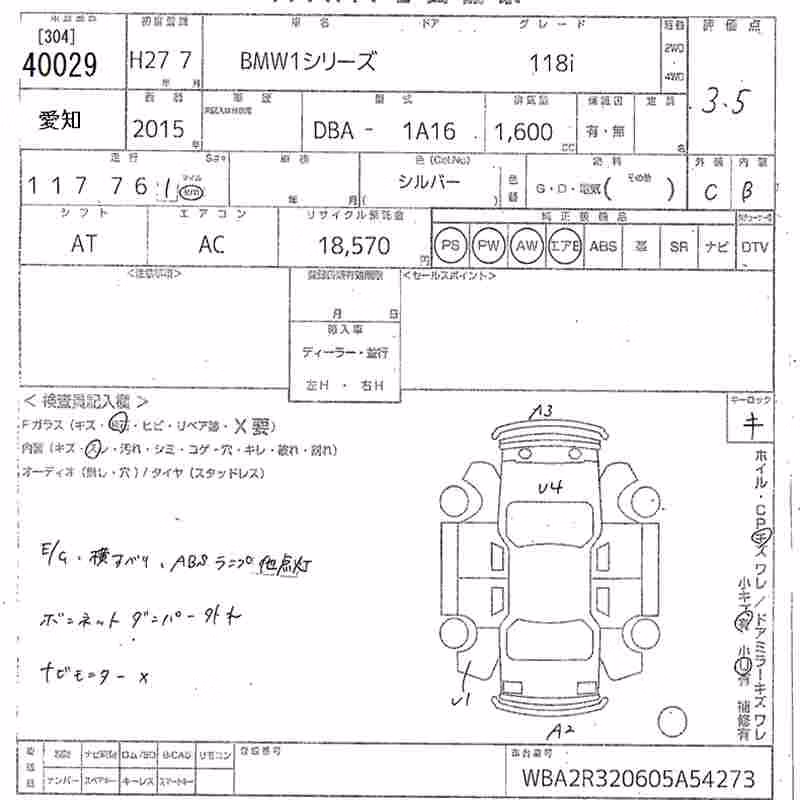 車名 ドア グレード
[304]
40029 H27 7 BMW1シリーズ 118i 2WD 4WD 評価点
年 月
愛知 西暦 車歴 型式 排気量 定員 3.5
2015 年 DBA - 1A16 1,600 cc 有・無 名
走行 色(Col.No) 燃料 外装 内装
117761 マイル km 年 月( シルバー ) G・D・電気( その他 ) C B
シフト エアコン リサイクル預託金 純正装備品
AT AC 18,570 円 PS PW AW エアB ABS 革 SR ナビ DTV
<注意事項> <セールスポイント>
月 日
輸入車
ディーラー・並行
左H・右H
<検査員記入欄> キーロック
Fガラス(キズ・ ・ヒビ・リペア跡・X要) キ
内装(キズ・スレ・汚れ・シミ・コゲ・穴・キレ・破れ・割れ)
オーディオ(無し・穴)/タイヤ(スタッドレス)
A3
U4
E/G・横すべり、ABSランプ他点灯
ボンネットダンパー外れ
ナビモニターX
U1
A2
ホイル・CPキズワレ/ドアミラーキズワレ
小キズ有 小凹有 補修有
ナビROM リモコン 登録番号 車台番号
ナンバー スペアキー キーレス スマートキー WBA2R320605A54273